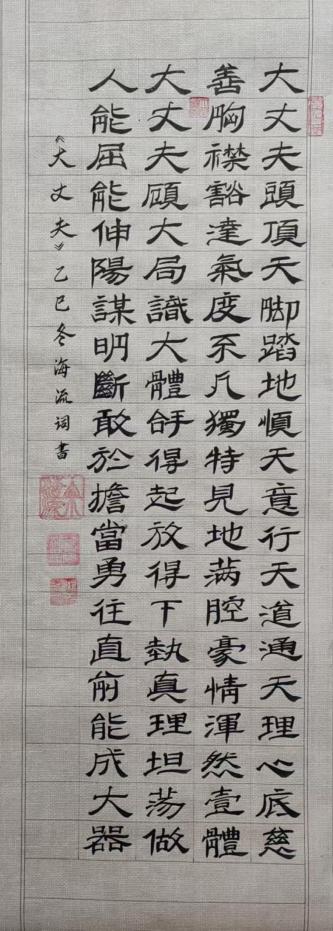 大丈夫頭頂天脚踏地順天意行天道通天理心底慈
善胸襟豁達氣度不凡獨特見地满腔豪情渾然壹體
大丈夫顧大局識大體拿得起放得下執真理坦荡做
人能屈能伸陽謀明斷敢於擔當勇往直前能成大器
《大丈夫》乙巳冬海流词書